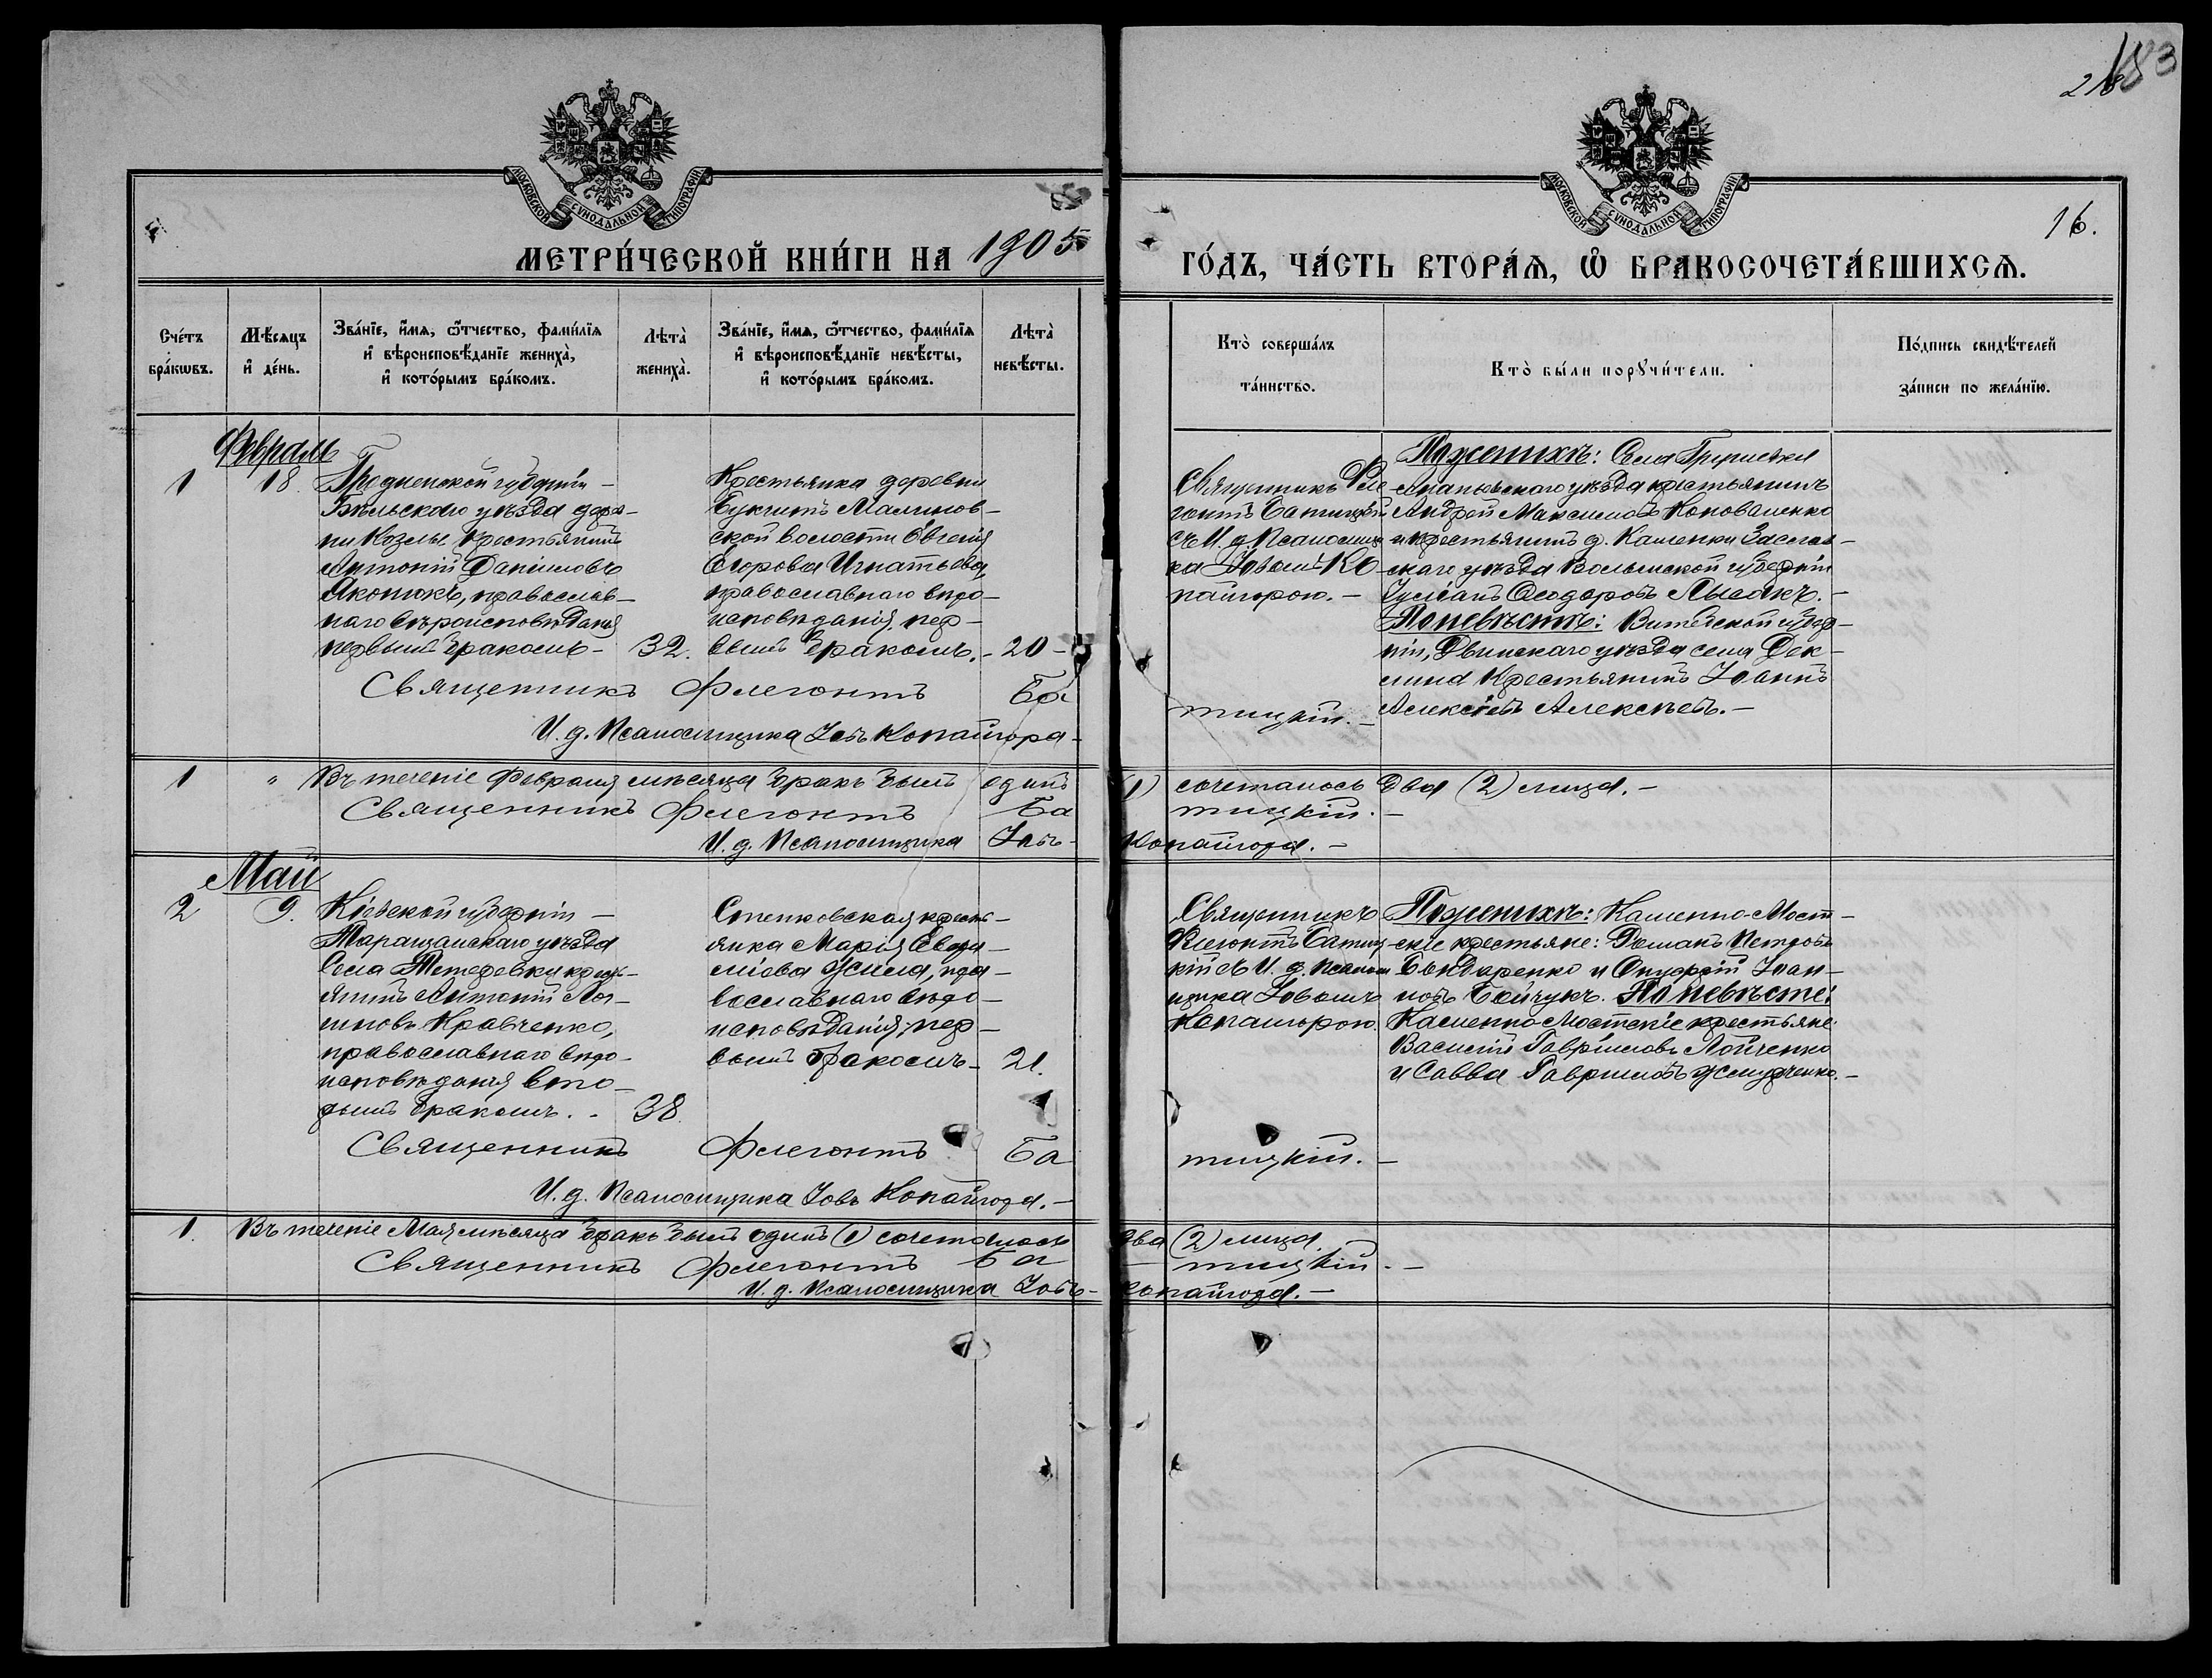 183
218
МОСКОВСКОЙ СѴНОДАЛЬНОЙ ТИПОГРАФІИ
МОСКОВСКОЙ СѴНОДАЛЬНОЙ ТИПОГРАФІИ
16.
МЕТРИ́ЧЕСКОЙ КНИ́ГИ НА 1905
ГО́ДЪ, ЧА́СТЬ ВТОРА́Я, Ѡ҆ БРАКОСОЧЕТА́ВШИХСЯ.
Сче́тъ бра́кѡвъ.
Мѣ́сяцъ и҆ де́нь.
Зва́нїе, и҆́мя, ѻ҆́тчество, фами́лїя
и҆ вѣроисповѣ́данїе жениха̀,
и҆ кото́рымъ бра́комъ.
Лѣта̀ жениха̀.
Зва́нїе, и҆́мя, ѻ҆́тчество, фами́лїя
и҆ вѣроисповѣ́данїе невѣ́сты,
и҆ кото́рымъ бра́комъ.
Лѣта̀ невѣ́сты.
Кто̀ соверша́лъ
та́инство.
Кто̀ бы́ли порꙋчи́тели.
По́дпись свидѣ́телей
за́писи по жела́нїю.
Февраль
1
18.
Гродненской губерніи
Бѣльскаго уѣзда дерев-
ни Козлы крестьянинъ
Антоній Даніиловъ
Яконюкъ, православ-
наго вѣроисповѣданія
первымъ бракомъ - 32.
Крестьянка деревни
Малинов-
ской волости Евгенія
Егорова Игнатьева,
православнаго вѣро-
исповѣданія, пер-
вымъ бракомъ. - 20 -
Священникъ Фле-
гонтъ Батицкій
съ И. д. Псаломщи-
ка Іовомъ Ко-
пайгорою. -
По женихѣ: Села
Ананьевскаго уѣзда крестьянинъ
Андрей Максимовъ Коноваленко
и крестьянинъ д. Каменки Заслав-
скаго уѣзда Волынской губерніи
Іуліанъ Ѳеодоровъ Лысакъ. -
По невѣстѣ: Витебской губер-
ніи, Двинскаго уѣзда села
крестьянинъ Іоаннъ
Алексіевъ Алексѣевъ. -
Священникъ Флегонтъ Батицкій. -
И. д. Псаломщика Іовъ Копайгора -
1 " Въ теченіе Февраля мѣсяца бракъ былъ одинъ (1) сочеталось два (2) лица. -
Священникъ Флегонтъ Батицкій. -
И. д. Псаломщика Іовъ Копайгора. -
Май
2
9.
Кіевской губерніи -
Таращанскаго уѣзда
Села Тетеревки крест-
янинъ Антоній Лог-
иновъ Кравченко,
православнаго вѣро-
исповѣданія вто-
рымъ бракомъ. - 38.
крестья-
янка Марія Евѳи-
міева православнаго вѣро-
исповѣданія, пер-
вымъ бракомъ - 21.
Священникъ
Флегонтъ Батиц-
кій съ И. д. Псалом-
щика Іовомъ
Копайгорою.
По женихѣ: Каменно-Мост-
скіе крестьяне: Демианъ Петровъ
Бондаренко и Онуфрій Іоан-
новъ Бойчукъ. По невѣстѣ:
Каменно-Мостскіе крестьяне:
Василій Гавріиловъ Лойченко
и Савва Гавріиловъ -
Священникъ Флегонтъ Батицкій. -
И. д. Псаломщика Іовъ Копайгора. -
1. Въ теченіе Мая мѣсяца бракъ былъ одинъ (1) сочеталось два (2) лица.
Священникъ Флегонтъ Батицкій. -
И. д. Псаломщика Іовъ Копайгора. -